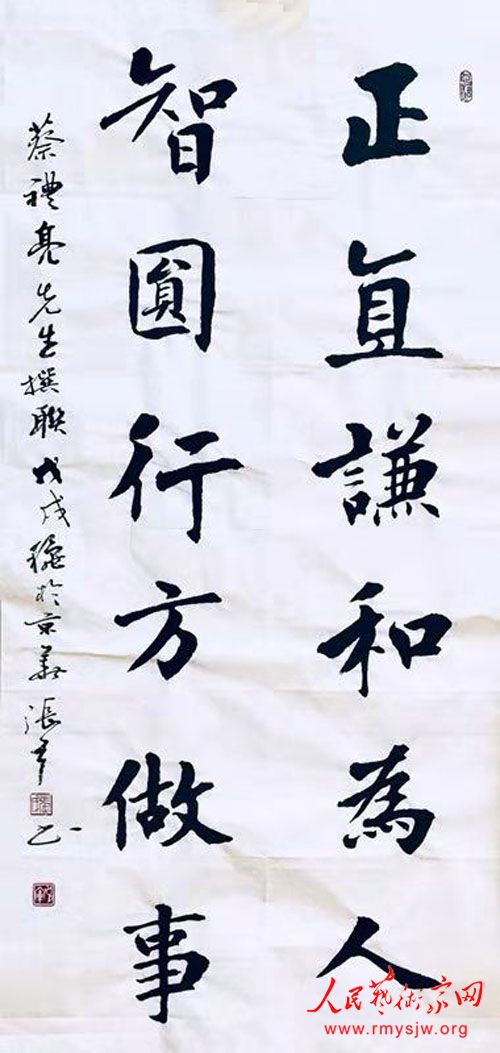 正直謙和為人
智圓行方做事
蔡禮亮先生撰聯戊戌秋於京華張軍书
人民藝術家网
www.rmysjw.org